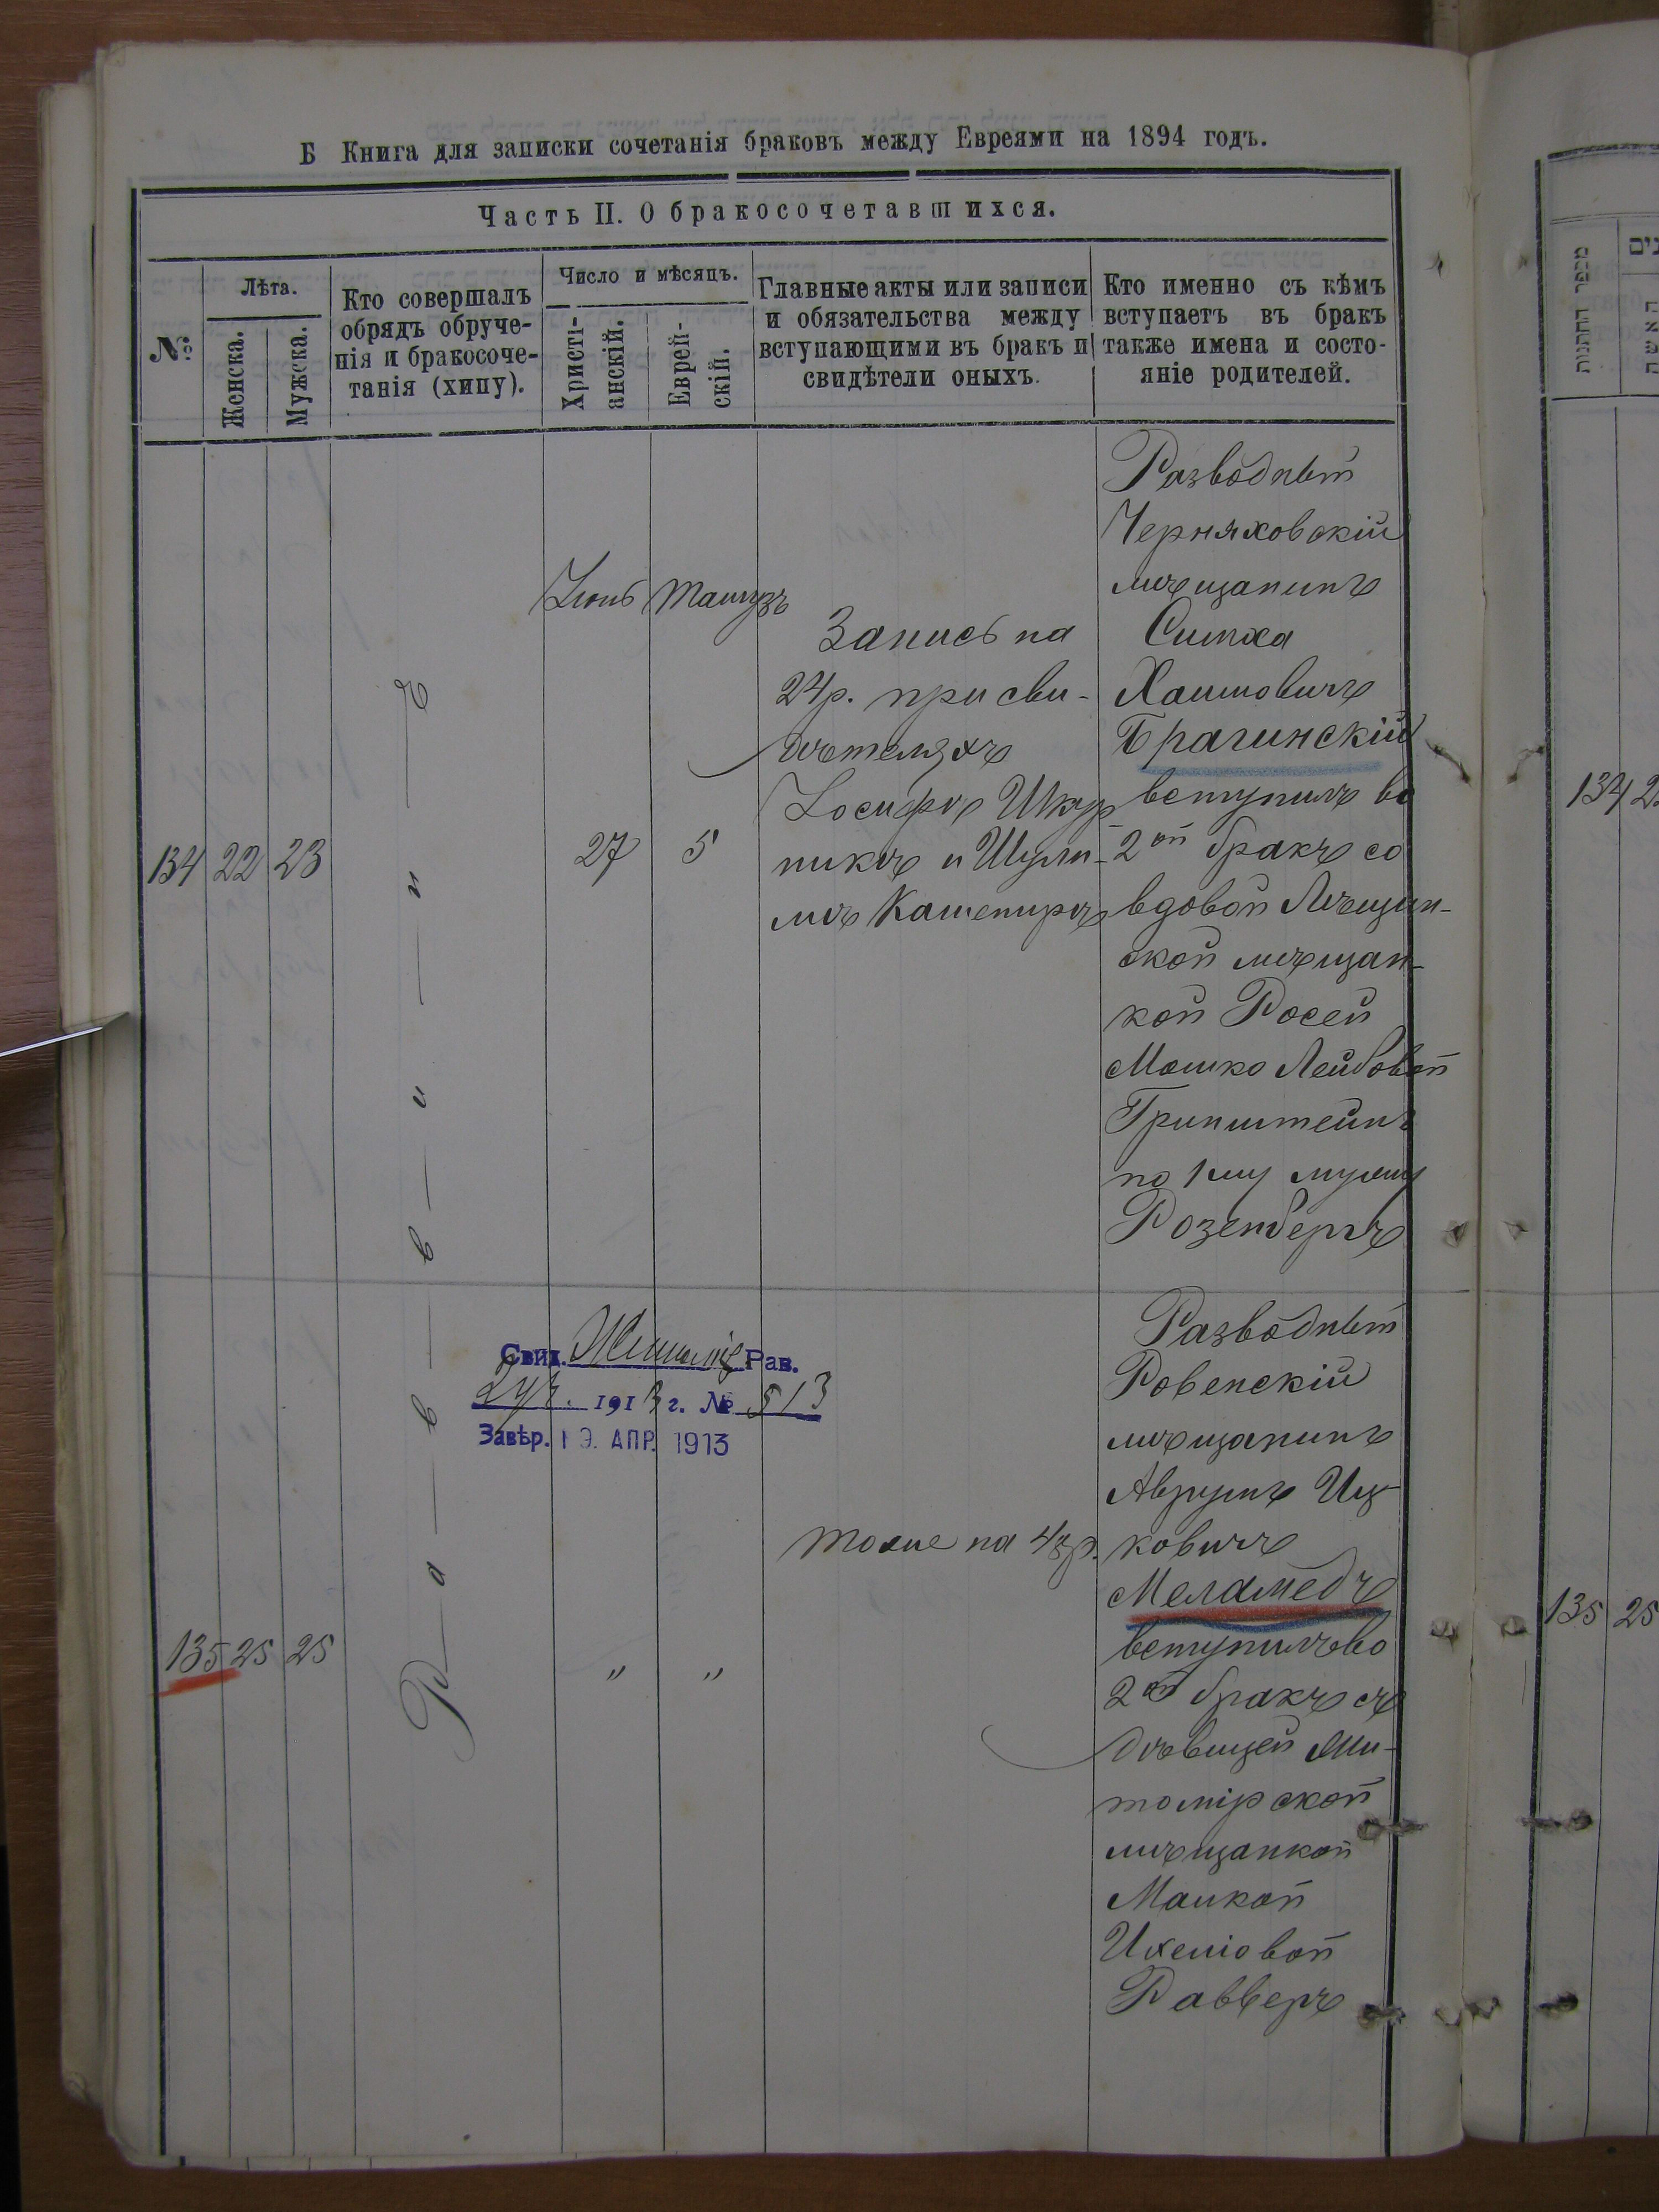 Б Книга для записки сочетанія браковъ между Евреями на 1894 годъ.
Часть II. О бракосочетавшихся.
№
Лѣта.
Женска.
Мужска.
Кто совершалъ
обрядъ обруче-
нія и бракосоче-
танія (хипу).
Число и мѣсяцъ.
Христі-
анскій.
Еврей-
скій.
Главные акты или записи
и обязательства между
вступающими въ бракъ и
свидѣтели оныхъ.
Кто именно съ кѣмъ
вступаетъ въ бракъ
также имена и состо-
яніе родителей.
134 22 23
Раввинъ
Іюнь Тамузъ
27 5
Запись на
24р. при сви-
дѣтеляхъ
Іосифѣ Шкур
никѣ и Шули-
мѣ Кашепирѣ
Разводный
Черняховскій
мѣщанинъ
Симха
Хаимовичъ
Брагинскій
вступилъ во
2ой бракъ со
вдовой Лѣщин-
ской мѣщан-
кой Росей
Мошко Лейбовой
Гринштейнъ
по 1му мужу
Розенбергъ
Свид. Рав.
1913 г. № 513
Завѣр. 19. АПР. 1913
135 25 25
" "
Тоже на 48р.
Разводный
Ровенскій
мѣщанинъ
Аврумъ Иц-
ковичъ
Меламедъ
вступилъ во
2ой бракъ съ
дѣвицей Жи-
томірской
мѣщанкой
Маикой
Ихеліовой
Равверъ
מספר החתנות
134
135 25